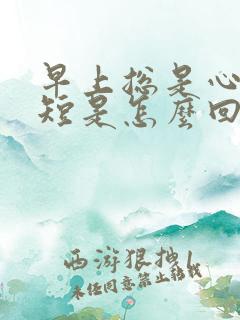 早上总是心
短是怎麽回
西游狠拽1
未经同意禁止转载